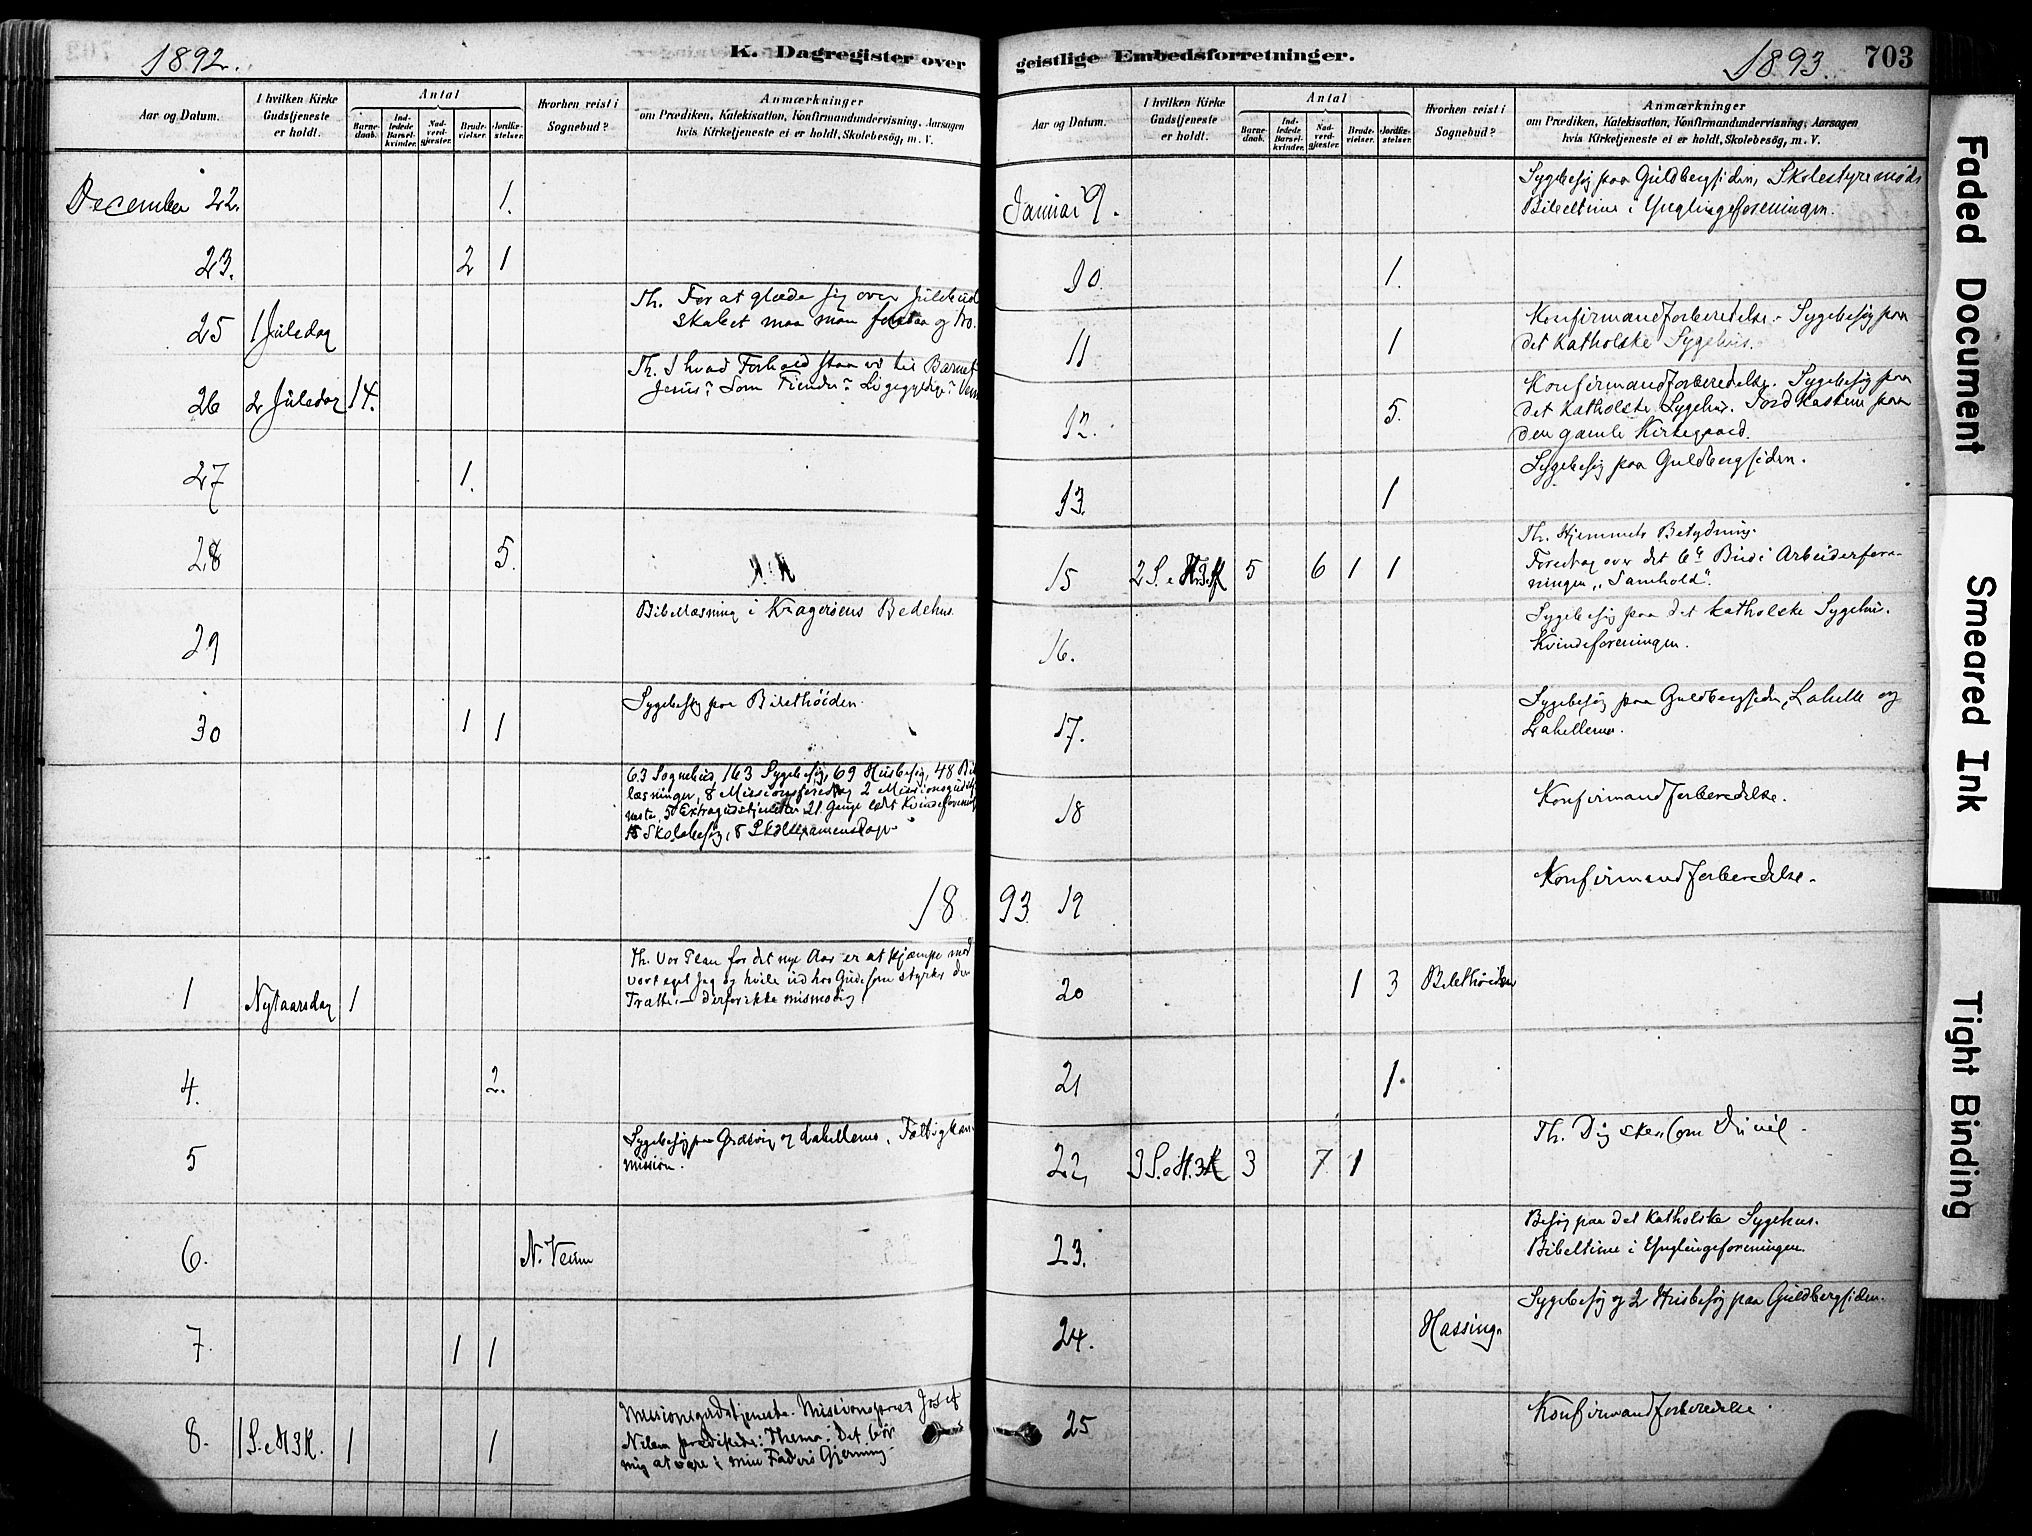 1892.
K. Dagregister over
Aar og Datum.
I hvilken Kirke Gudstjeneste er holdt.
Antal
Barne-daab.
Ind-ledede Barsel-kvinder.
Nad-verd-gjæster.
Brude-vielser.
Jordfæ-stelser.
Hvorhen reist i Sognebud?
Anmærkninger
om Prædiken, Katekisation, Konfirmandundervisning, Aarsagen
hvis Kirketjeneste ei er holdt, Skolebesøg, m. V.
December 22. 1.
23. 2 1
25 1 Juledag
Th. For at glæde sig over Julebud
skabet maa man forstaa og tro.
26 2 Juledag 14.
Th. I hvad Forhold staa vi til Barnet
Jesus? Som Fiender? Ligegyldige? Ven
27 1.
28 5.
29
Bibellæsning i Kragerøens Bedehus
30 1 1
Sygebesøg paa Bilethøiden
63 Sognebud, 163 Sygebesøg, 69 Husbesøg, 48 Bi
læsninger, 8 Missionsforedrag 2 Missionsgudstj
neste, 50 Extragudstjenester 21 Gange ledt Kvindeforening
18 Skolebesøg, 8 Skoleexamensdage
18
1 Nytaarsdag 1
Th. Vor Plan for det nye Aar er at kjæmpe mod
vort eget Jeg og hvile ud hos Gud som styrker den
Trætte. – derfor ikke mismodig!
4. 2.
5
Sygebesøg paa Græsvig og Lahellerne. Fattigkom
mission.
6. N. Veum
7. 1 1
8. 1 S. e H3K. 1 1
Missionsgudstjeneste. Missionsprest Josef
Nilsen prædikede: Thema. Det bør
mig at være i min Faders Gjerning
geistlige Embedsforretninger.
1893.
703
Aar og Datum.
I hvilken Kirke Gudstjeneste er holdt.
Antal
Barne-daab.
Ind-ledede Barsel-kvinder.
Nad-verd-gjæster.
Brude-vielser.
Jordfæ-stelser.
Hvorhen reist i Sognebud?
Anmærkninger
om Prædiken, Katekisation, Konfirmandundervisning, Aarsagen
hvis Kirketjeneste ei er holdt, Skolebesøg, m. V.
Januar 9.
Sygebesøg paa Guldbergsiden, Skolestyremøde
Bibeltime i Ynglingeforeningen.
10. 1.
11 1
Konfirmandforberedelse. Sygebesøg paa
det katholske Sygehus.
12. 5.
Konfirmandforberedelse. Sygebesøg paa
det katholske Sygehus. Jordkastelse paa
den gamle Kirkegaard.
13. 1
Sygebesøg paa Guldbergsiden.
15 2 S. e H3K 5 6 1 1
Th. Hjemmets Betydning.
Foredrag over det 6te Bud i Arbeiderfore-
ningen „Samhold“.
16.
Sygebesøg paa det katholske Sygehus.
Kvindeforeningen.
17.
Sygebesøg paa Guldbergsiden, Lahelle og
Lahellerne.
18
Konfirmandforberedelse.
93 19
Konfirmandforberedelse.
20 1 3 Bilethøiden
21 1.
22, 3 S. e H. 3 K 3 7 1
Th. Dig ske, som Du vil.
23.
Besøg paa det katholske Sygehus.
Bibeltime i Ynglingeforeningen.
24. Hassing.
Sygebesøg og 2 Husbesøg paa Guldbergsiden.
25
Konfirmandforberedelse.
Faded Document
Smeared Ink
Tight Binding